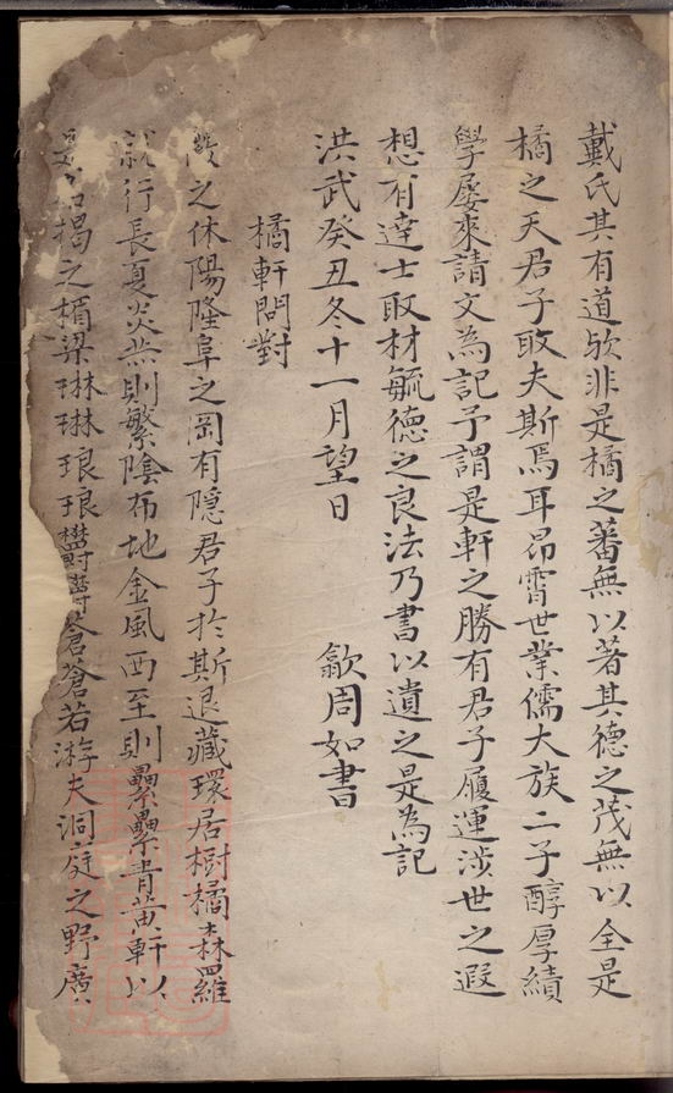 戴氏其有道歟非是橘之蕃無以著其德之茂無以全是
橘之天君子取夫斯焉耳昂霄世業儒大族二子醇厚績
學屡來請文為記予謂是軒之勝有君子履運涉世之遐
想有達士取材毓德之良法乃書以遺之是為記
洪武癸丑冬十一月望日 歙周如書
橘軒問對
之休陽隆阜之岡有隱君子於斯退藏環居樹橘森羅
就行長夏炎蒸則繁陰布地金風西至則纍纍青黄軒以
揭之楣梁琳琳琅琅欝欝蒼蒼若游夫洞庭之野廣